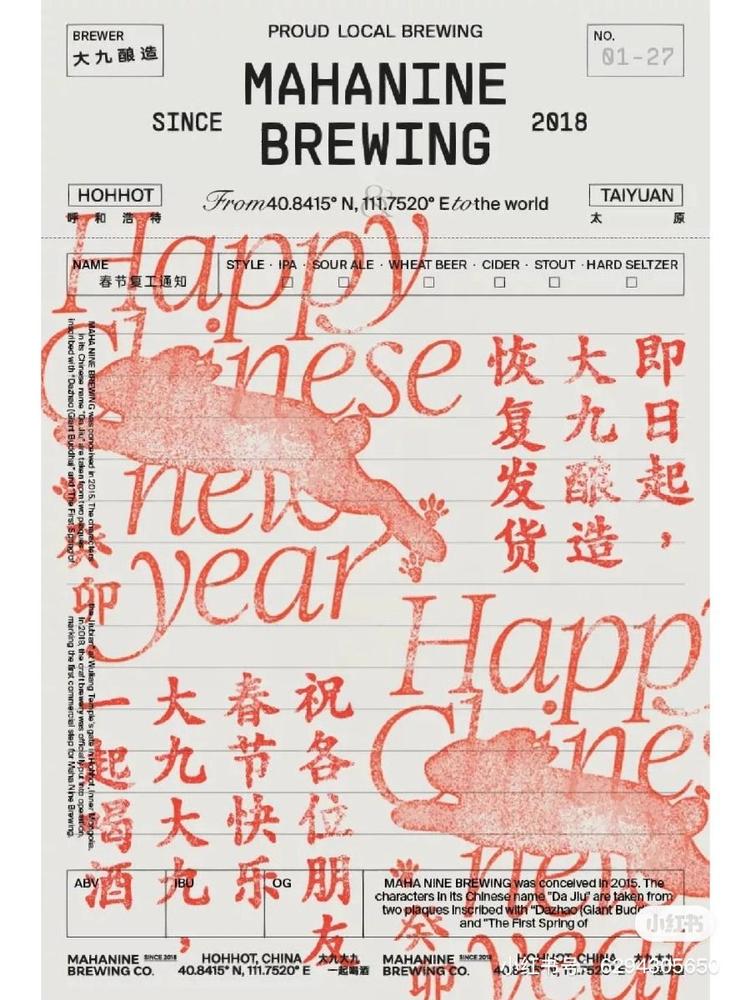 BREWER
大九酿造
PROUD LOCAL BREWING
NO.
01-27
MAHANINE
SINCE
BREWING
2018
HOHHOT
呼和浩特
From 40.8415° N, 111.7520° E to the world
&
TAIYUAN
太原
NAME
春节复工通知
STYLE · IPA · SOUR ALE · WHEAT BEER · CIDER · STOUT · HARD SELTZER
Happy
Chinese
new
year
即日起，
大九酿造
恢复发货
癸卯
MAHA NINE BREWING was conceived in 2015. The characters
in its Chinese name "Da Jiu" are taken from two plaques
inscribed with "Dazhao (Giant Buddha)" and "The First Spring of
the Jiubian" at Wuliang Temple's gate in Hohhot, Inner Mongolia.
In 2018, the craft brewery was officially put into operation,
marking the first commercial step for Maha Nine Brewing.
祝各位朋友
春节快乐
大九大九，
一起喝酒
Happy
Chines
new
year
癸卯
ABV
IBU
OG
MAHA NINE BREWING was conceived in 2015. The
characters in its Chinese name "Da Jiu" are taken from
two plaques inscribed with "Dazhao (Giant Budd
and "The First Spring of
MAHANINE
BREWING CO.
SINCE 2018
HOHHOT, CHINA
40.8415° N, 111.7520° E
大九大九
一起喝酒
MAHANINE
BREWING CO.
SINCE 2018
HOHHOT, CHINA
大九大九
小红书